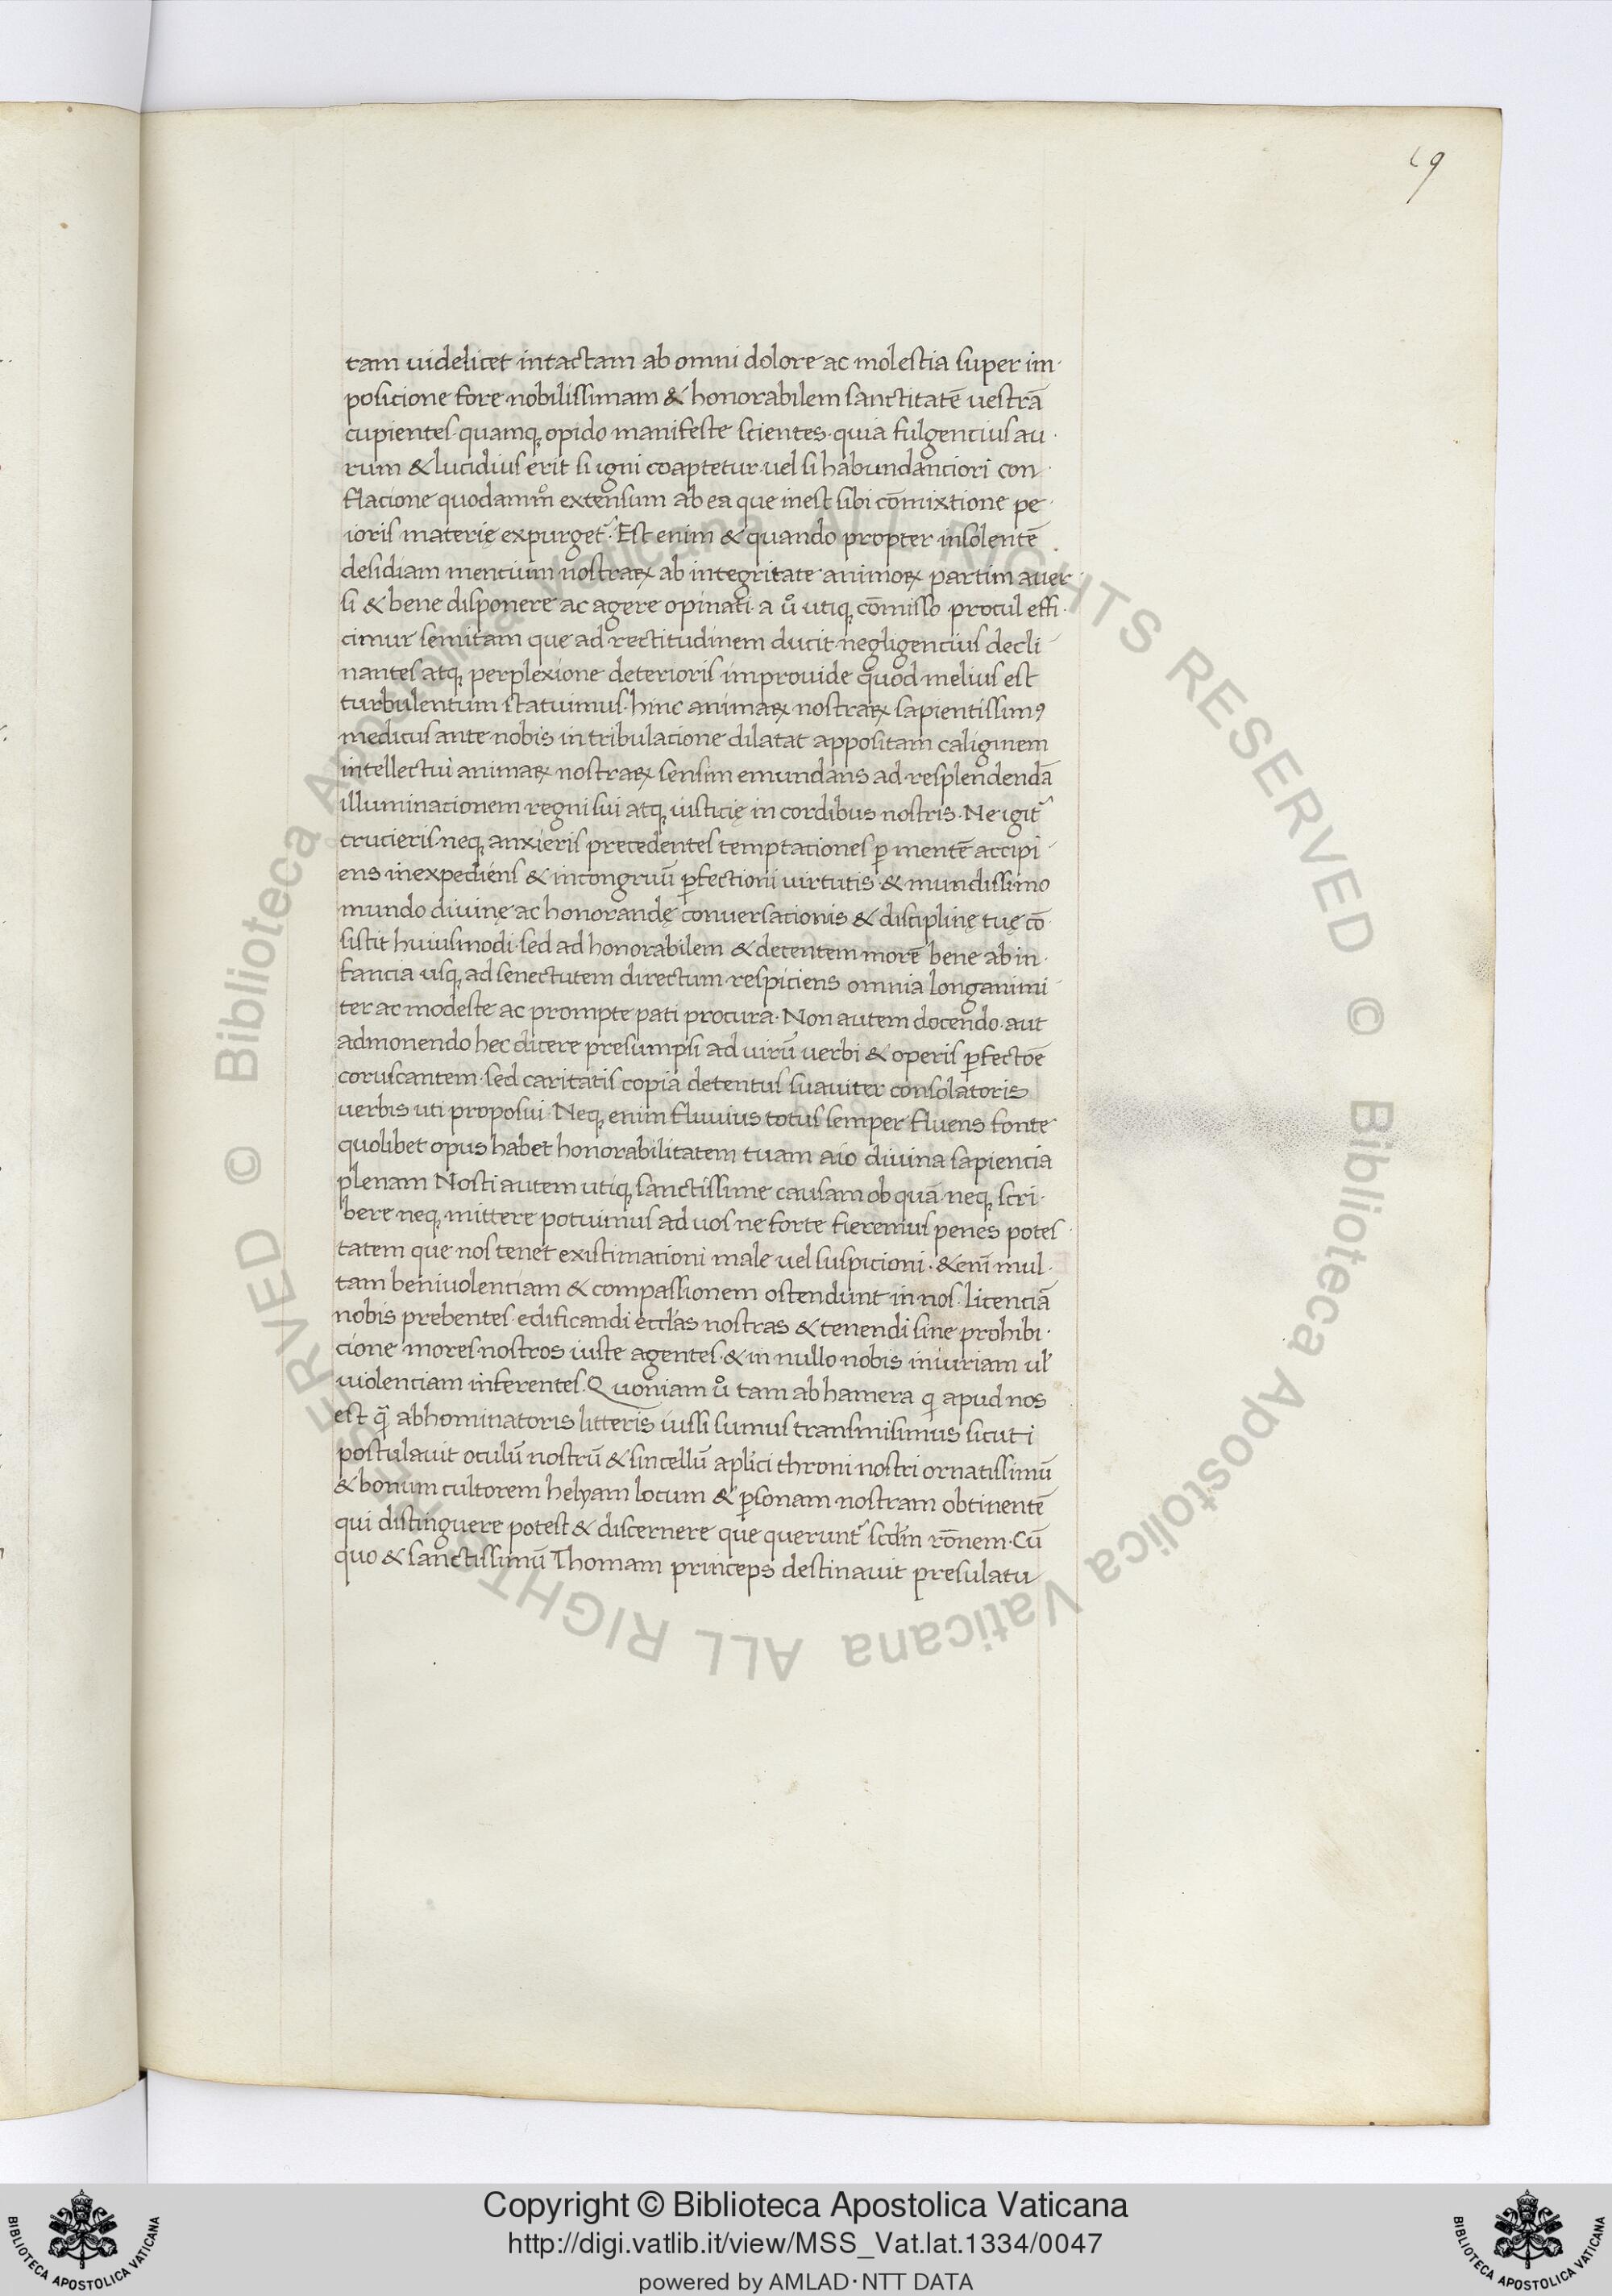 19
tam uidelicet intactam ab omni dolore ac molestia super im·
posicione fore nobilissimam & honorabilem sanctitatē uestrā
cupientes· quamq; opido manifeste scientes· quia fulgencius au·
rum & lucidius erit si igni coaptetur· uel si habundanciori con·
flacione quodammo extensum ab ea que inest sibi cōmixtione pe·
ioris materię expurget᷑· Est enim & quando propter insolentē
desidiam mencium nostraꝝ ab integritate animoꝝ partim auer·
si & bene disponere ac agere opinati· a uͦ utiq; cōmisso procul effi·
cimur semitam que ad rectitudinem ducit negligencius decli
nantes atq; perplexione deterioris improuide quod melius est
turbulentum statuimus· hinc animaꝝ nostraꝝ sapientissimꝰ
medicus ante nobis in tribulacione dilatat appositam caliginem
intellectui animaꝝ nostraꝝ sensim emundans ad resplendendā
illuminacionem regni sui atq; iusticię in cordibus nostris· Ne igit᷑
crucieris· neq; anxieris precedentes temptaciones ꝑ mentē accipi
ens inexpediens & incongruū ꝑfectioni uirtutis· & mundissimo
mundo diuinę ac honorandę conuersacionis & disciplinę tuę cō
sistit huiusmodi· sed ad honorabilem & decentem morē bene ab in·
fancia usq; ad senectutem directum respiciens omnia longanimi
ter ac modeste ac prompte pati procura· Non autem docendo aut
admonendo hec dicere presumpsi ad uirū uerbi & operis ꝑfectōe
coruscantem· sed caritatis copia detentus suauiter consolatoris
uerbis uti proposui· Neq; enim fluuius totus semper fluens fonte
quolibet opus habet honorabilitatem tuam aio diuina sapiencia
plenam Nosti autem utiq; sanctissime causam ob quā neq; scri·
bere neq; mittere potuimus ad uos ne forte fieremus penes potes·
tatem que nos tenet existimationi male uel suspicioni· & enī mul·
tam beniuolenciam & compassionem ostendunt in nos· licenciā
nobis prebentes· edificandi eccl̅as nostras & tenendi sine prohibi·
cione mores nostros iuste agentes· & in nullo nobis iniuriam ul̕
uiolenciam inferentes· Quoniam uͦ tam ab hamera qi apud nos
est qͣ abhominatoris litteris iussi sumus transmisimus sicuti
postulauit oculū nostrū & sincellū apl̕ici throni nostri ornatissimū
& bonum cultorem helyam locum & ꝑsonam nostram obtinentē
qui distinguere potest & discernere que querunt᷑ scd̅m rōnem· Cū
quo & sanctissimū Thomam princeps destinauit presulatu
Copyright © Biblioteca Apostolica Vaticana
http://digi.vatlib.it/view/MSS_Vat.lat.1334/0047
powered by AMLAD·NTT DATA
BIBLIOTECA APOSTOLICA VATICANA
BIBLIOTECA APOSTOLICA VATICANA
© Biblioteca Apostolica Vaticana ALL RIGHTS RESERVED © Biblioteca Apostolica Vaticana ALL RIGHTS RESERVED